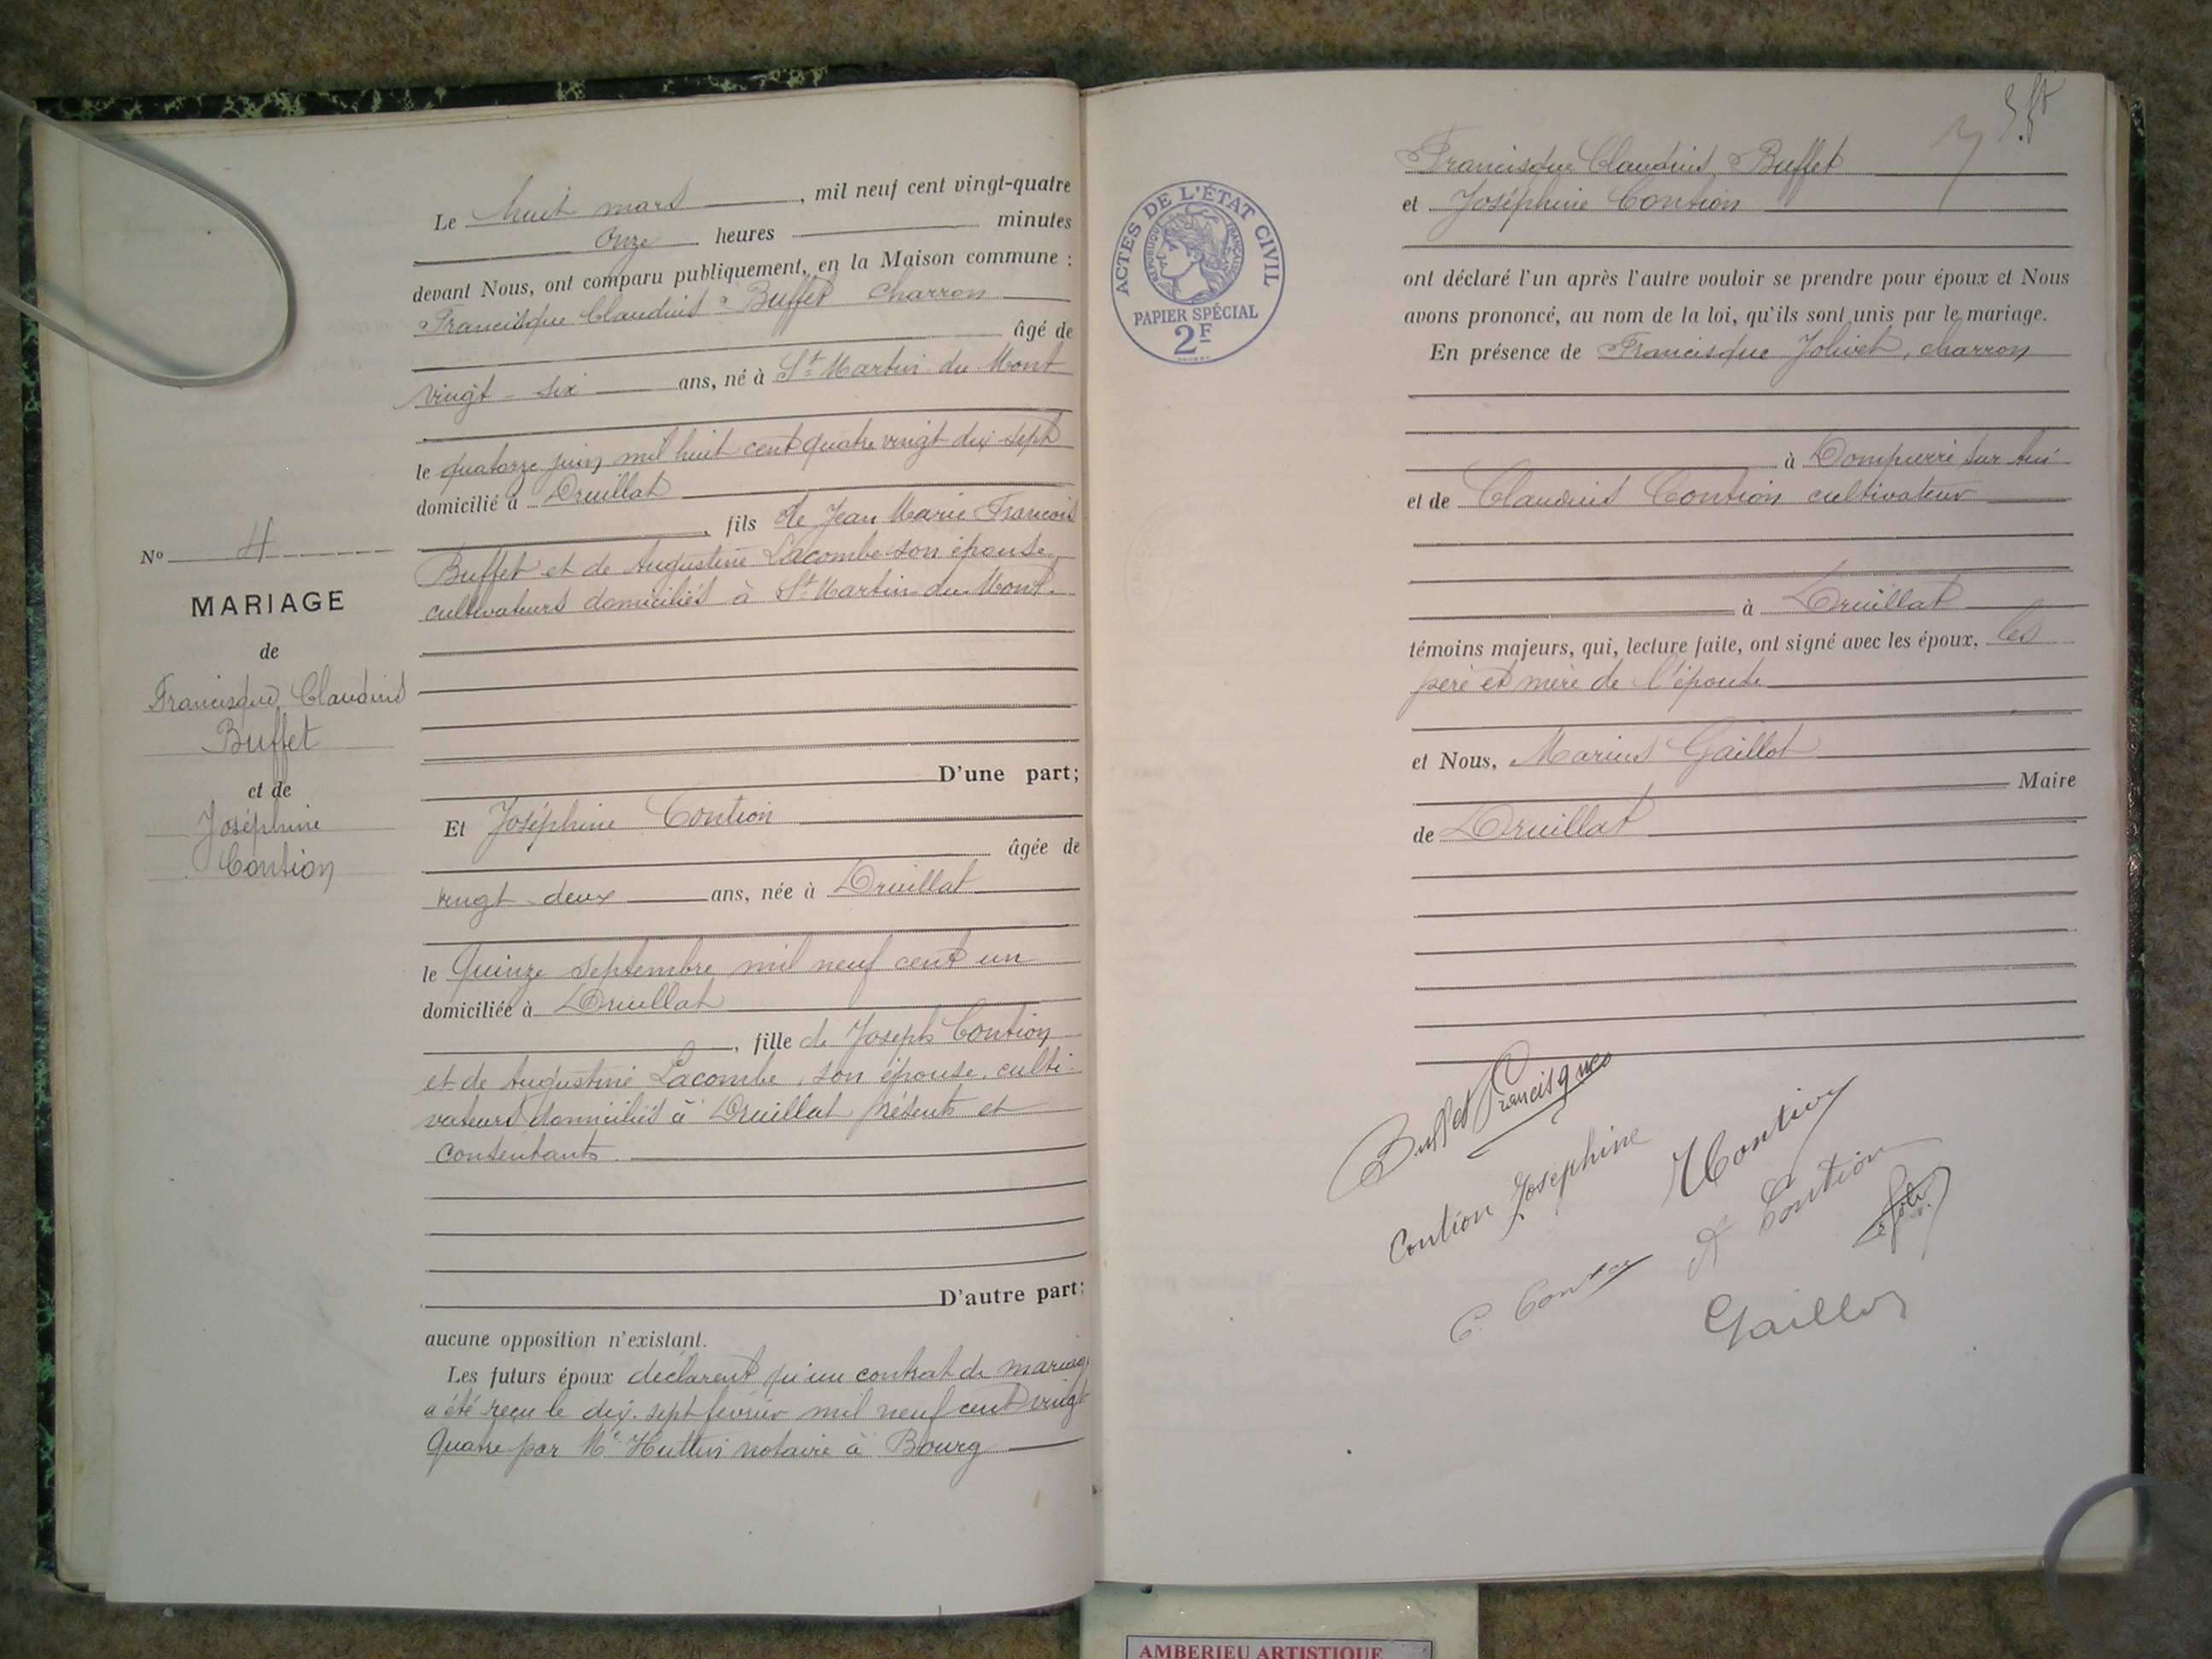 Nº 4
MARIAGE
de
Francisque Claudius
Buffet
et de
Joséphine
Contion
Le huit mars, mil neuf cent vingt-quatre
Onze heures minutes
devant Nous, ont comparu publiquement, en la Maison commune :
Francisque Claudius Buffet charron
âgé de
vingt-six ans, né à St Martin du Mont
le quatorze juin mil huit cent quatre vingt dix sept
domicilié à Druillat
, fils de Jean Marie François
Buffet et de Augustine Lacombe son épouse
cultivateurs domiciliés à St Martin du Mont.
D'une part;
Et Joséphine Contion
âgée de
vingt-deux ans, née à Druillat
le Quinze septembre mil neuf cent un
domiciliée à Druillat
, fille de Joseph Contion
et de Augustine Lacombe, son épouse, culti-
vateurs domiciliés à Druillat présents et
consentants.
D'autre part;
aucune opposition n'existant.
Les futurs époux déclarent qu'un contrat de mariage
a été reçu le dix-sept février mil neuf cent vingt
quatre par Me Huttin notaire à Bourg
ACTES DE L'ÉTAT CIVIL
RÉPUBLIQUE FRANÇAISE
PAPIER SPÉCIAL
2F
Francisque Claudius Buffet
et Joséphine Contion
ont déclaré l'un après l'autre vouloir se prendre pour époux et Nous
avons prononcé, au nom de la loi, qu'ils sont unis par le mariage.
En présence de Francisque Jolivet, charron
à Dompierre sur
et de Claudius Contion cultivateur
à Druillat
témoins majeurs, qui, lecture faite, ont signé avec les époux, les
père et mère de l'épouse
et Nous, Marius Gaillot
Maire
de Druillat
Buffet Francisques
Contion Joséphine
Contion
C. Contion
A Contion
Gaillot
AMBERIEU ARTISTIQUE